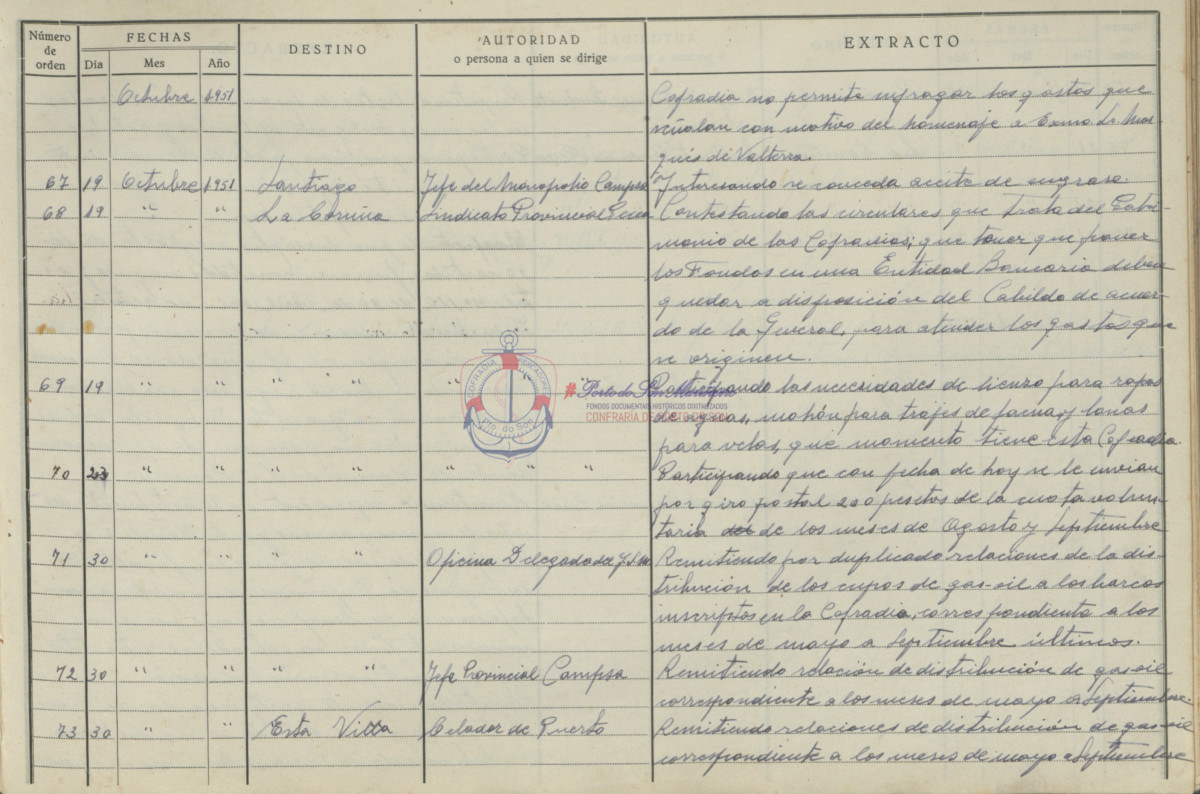 Número de orden
FECHAS
Día Mes Año
DESTINO
AUTORIDAD
o persona a quien se dirige
EXTRACTO
Octubre 1951 Cofradia no permite sufragar los gastos que
señalan con motivo del homenaje a Exmo Sr. Mar-
qués de Valterra.
67 19 Octubre 1951 Santiago Jefe del Monopolio Campsa Interesando se conceda aceite de engrase.
68 19 " " La Coruña Sindicato Provincial Pesca Contestando las circulares que trata del Patri-
monio de las Cofradias; que tener que poner
los Fondos en una Entidad Bancaria deben
quedar a disposición del Cabildo de acuer-
do de la General, para atender los gastos que
se originen.
69 19 " " " " " " " Participando las necesidades de lienzo para ropas
de aguas, mahón para trajes de faena, y lonas
para velas, que momento tiene esta Cofradia.
70 23 " " " " " " " Participando que con fecha de hoy se le envian
por giro postal 200 pesetas de la cuota volun-
taria de los meses de Agosto y Septiembre
71 30 " " " " Oficina Delegada del Remitiendo por duplicado relaciones de la dis-
tribución de los cupos de gas-oil a los barcos
inscriptos en la Cofradia, correspondiente a los
meses de mayo a Septiembre últimos.
72 30 " " " " Jefe Provincial Campsa Remitiendo relación de distribución de gas-oil
correspondiente a los meses de mayo a Septiembre.
73 30 " " Esta Villa Celador de Puerto Remitiendo relaciones de distribución de gas-oil
correspondiente a los meses de mayo a Septiembre
COFRADIA
Pto. do Son
#Porto do Son
FONDOS DOCUMENTAIS HISTÓRICOS DIXITALIZADOS
CONFRARÍA DE PORTO DO SON